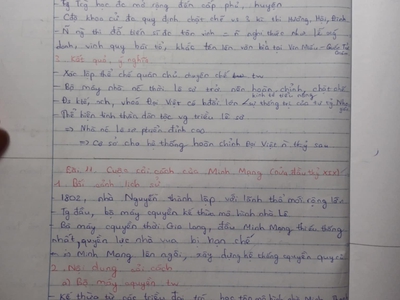 - Tg Trg học đc mở rộng đến cấp phủ, huyện
- Các khoa cử đc quy định chặt chẽ vs 3 kì thi Hương, Hội, Đình
- N ng thi đỗ tiến sĩ đc tôn vinh = n nghi thức như lễ xg
danh, vinh quy bái tổ, khắc tên lên văn bia tại Văn Miếu - Quốc Tử Giám
3. Kết quả, ý nghĩa
- Xác lập thể chế quân chủ chuyên chế tw
- Bộ máy nhà nc thời Lê sơ trở nên hoàn chỉnh, chặt chẽ
- Đs ktế, xh, vhoá Đại Việt có bước lớn
- Thể hiện tinh thần dân tộc vg triều Lê sơ
⇒ Nhà nc Lê sơ phát đỉnh cao
⇒ Cơ sở cho hệ thống hoàn chỉnh Đại Việt n thg sau
Bài 11. Cuộc cải cách của Minh Mạng (nửa đầu thế kỉ XIX)
1. Bối cảnh lịch sử
- 1802, nhà Nguyễn thành lập với lãnh thổ mở rộng lớn
- Tg đầu, bộ máy cquyền kế thừa mô hình nhà Lê
- Bộ máy cquyền thời Gia Long, đầu Minh Mạng thiếu thống
nhất, quyền lực nhà vua bị hạn chế
- ⇒ Minh Mạng lên ngôi, xây dựng hệ thống cquyền quy củ
2. Nội dung cải cách
a) Bộ máy cquyền tw
- Kế thừa từ các triều đại trc, học tập mô hình nhà